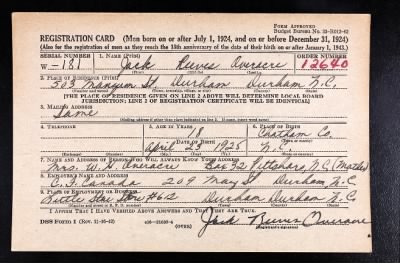 FORM APPROVED
Budget Bureau No. 33-R012-42
REGISTRATION CARD (Men born on or after July 1, 1924, and on or before December 31, 1924)
(Also for the registration of men as they reach the 18th anniversary of the date of their birth on or after January 1, 1943.)
SERIAL NUMBER 1. NAME (Print) ORDER NUMBER
W-181 Jack Reeves Overacre 12640
(First) (Middle) (Last)
2. PLACE OF RESIDENCE (Print)
503 Mangum St. Durham Durham N.C.
(Number and street) (Town, township, village, or city) (County) (State)
[THE PLACE OF RESIDENCE GIVEN ON LINE 2 ABOVE WILL DETERMINE LOCAL BOARD
JURISDICTION; LINE 2 OF REGISTRATION CERTIFICATE WILL BE IDENTICAL]
3. MAILING ADDRESS
Same
[Mailing address if other than place indicated on line 2. If same, insert word same]
4. TELEPHONE 5. AGE IN YEARS 6. PLACE OF BIRTH
18 Chatham Co.
DATE OF BIRTH (Town or county)
April 1925 N.C.
(Exchange) (Number) (Mo.) (Day) (Yr.) (State or country)
7. NAME AND ADDRESS OF PERSON WHO WILL ALWAYS KNOW YOUR ADDRESS
Mrs. W. D. Overacre Box 32 Pittsboro, N.C. (Mother)
8. EMPLOYER'S NAME AND ADDRESS
C. F. Canada 209 May St Durham, N.C
9. PLACE OF EMPLOYMENT OR BUSINESS
Little Star Store #612 Durham Durham N.C.
(Number and street or R. F. D. number) (Town) (County) (State)
I AFFIRM THAT I HAVE VERIFIED ABOVE ANSWERS AND THAT THEY ARE TRUE.
DSS Form 1 (Rev. 11-16-42) (OVER) Jack Reeves Overacre
(Registrant's signature)